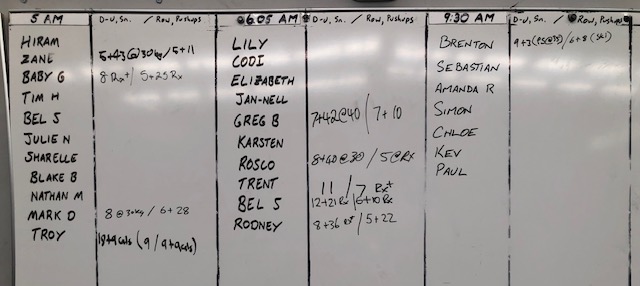 5 AM D-U, Sn. / Row, Pushups
HIRAM
ZANE 5+43@30kg / 5+11
BABY G 8 Rx+ / 5+25Rx
TIM H
BEL S
JULIE N
SHARELLE
BLAKE B
NATHAN M
MARK D 8 @30kg / 6+28
TROY (9 / 9+9cals)
6.05 AM D-U, Sn. / Row, Pushups
LILY
CODI
ELIZABETH
JAN-NELL
GREG B 7+42@40 / 7+10
KARSTEN
ROSCO 8+40@30 / 5@Rx
TRENT 11 / 7 Rx+
BEL S 12+21Rx / 6+10Rx
RODNEY 8+36 Rx / 5+22
9:30 AM D-U, Sn. / Row, Pushups
BRENTON 9+3 (PS@35) / 6+8 (SKI)
SEBASTIAN
AMANDA R
SIMON
CHLOE
KEV
PAUL